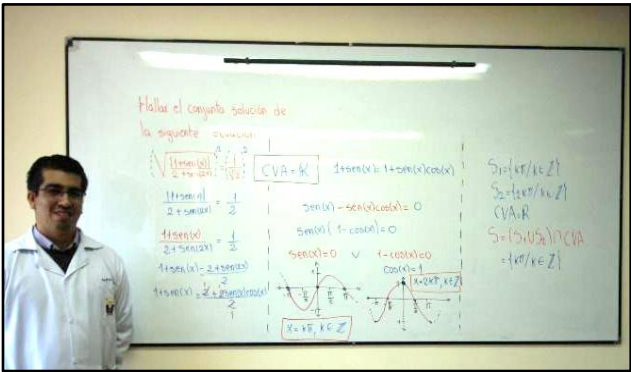 Hallar el conjunto solución de
la siguiente ecuación
√(|1+sen(x)|/(2+sen(2x))) = 1/√2
|1+sen(x)|/(2+sen(2x)) = 1/2
1+sen(x)/(2+sen(2x)) = 1/2
1+sen(x) = 2+sen(2x)/2
1+sen(x) = 2+2sen(x)cos(x)/2
CVA=ℝ
1+sen(x)=1+sen(x)cos(x)
sen(x)-sen(x)cos(x)=0
sen(x)(1-cos(x))=0
sen(x)=0 ∨ 1-cos(x)=0
cos(x)=1
x=2kπ, k∈ℤ
x=kπ, k∈ℤ
S₁={kπ/k∈ℤ}
S₂={2kπ/k∈ℤ}
CVA=ℝ
S=(S₁∪S₂)∩CVA
={kπ/k∈ℤ}